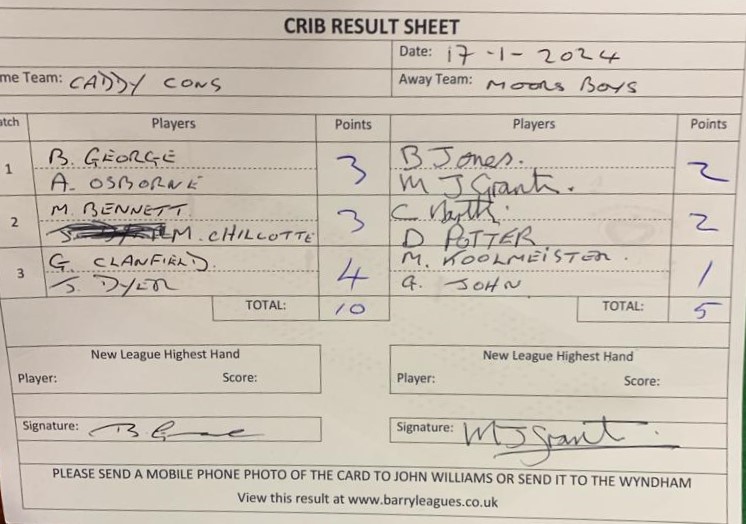 CRIB RESULT SHEET
Date: 17-1-2024
me Team: CADDY CONS
Away Team: MOORS BOYS
atch Players Points Players Points
1 B. GEORGE 3 B Jones. 2
A. OSBORNE M J Grant.
2 M. BENNETT 3 C 2
M. CHILLOTTE D POTTER
3 G. CLANFIELD. 4 M. KOOLMEISTER. 1
S. DYER G. JOHN
TOTAL: 10 TOTAL: 5
New League Highest Hand New League Highest Hand
Player: Score: Player: Score:
Signature: Signature: M J Grant
PLEASE SEND A MOBILE PHONE PHOTO OF THE CARD TO JOHN WILLIAMS OR SEND IT TO THE WYNDHAM
View this result at www.barryleagues.co.uk